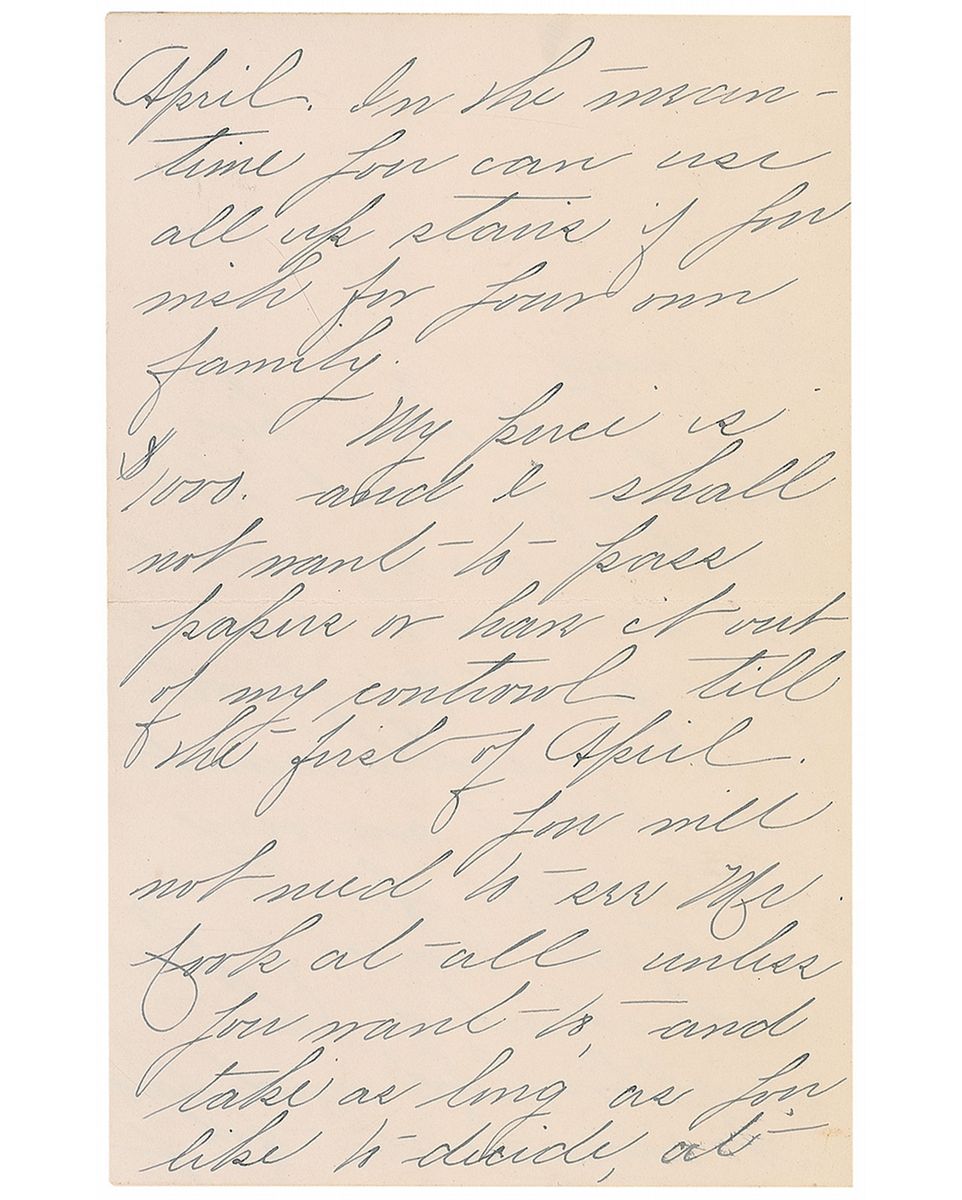 April. In the mean-
time you can use
all up stairs if you
wish for your own
family.
My price is
$1000. and I shall
not want to pass
papers or have it out
of my control till
the first of April.
You will
not need to see Mr.
at all unless
you want to, and
take as long as you
like to decide, at